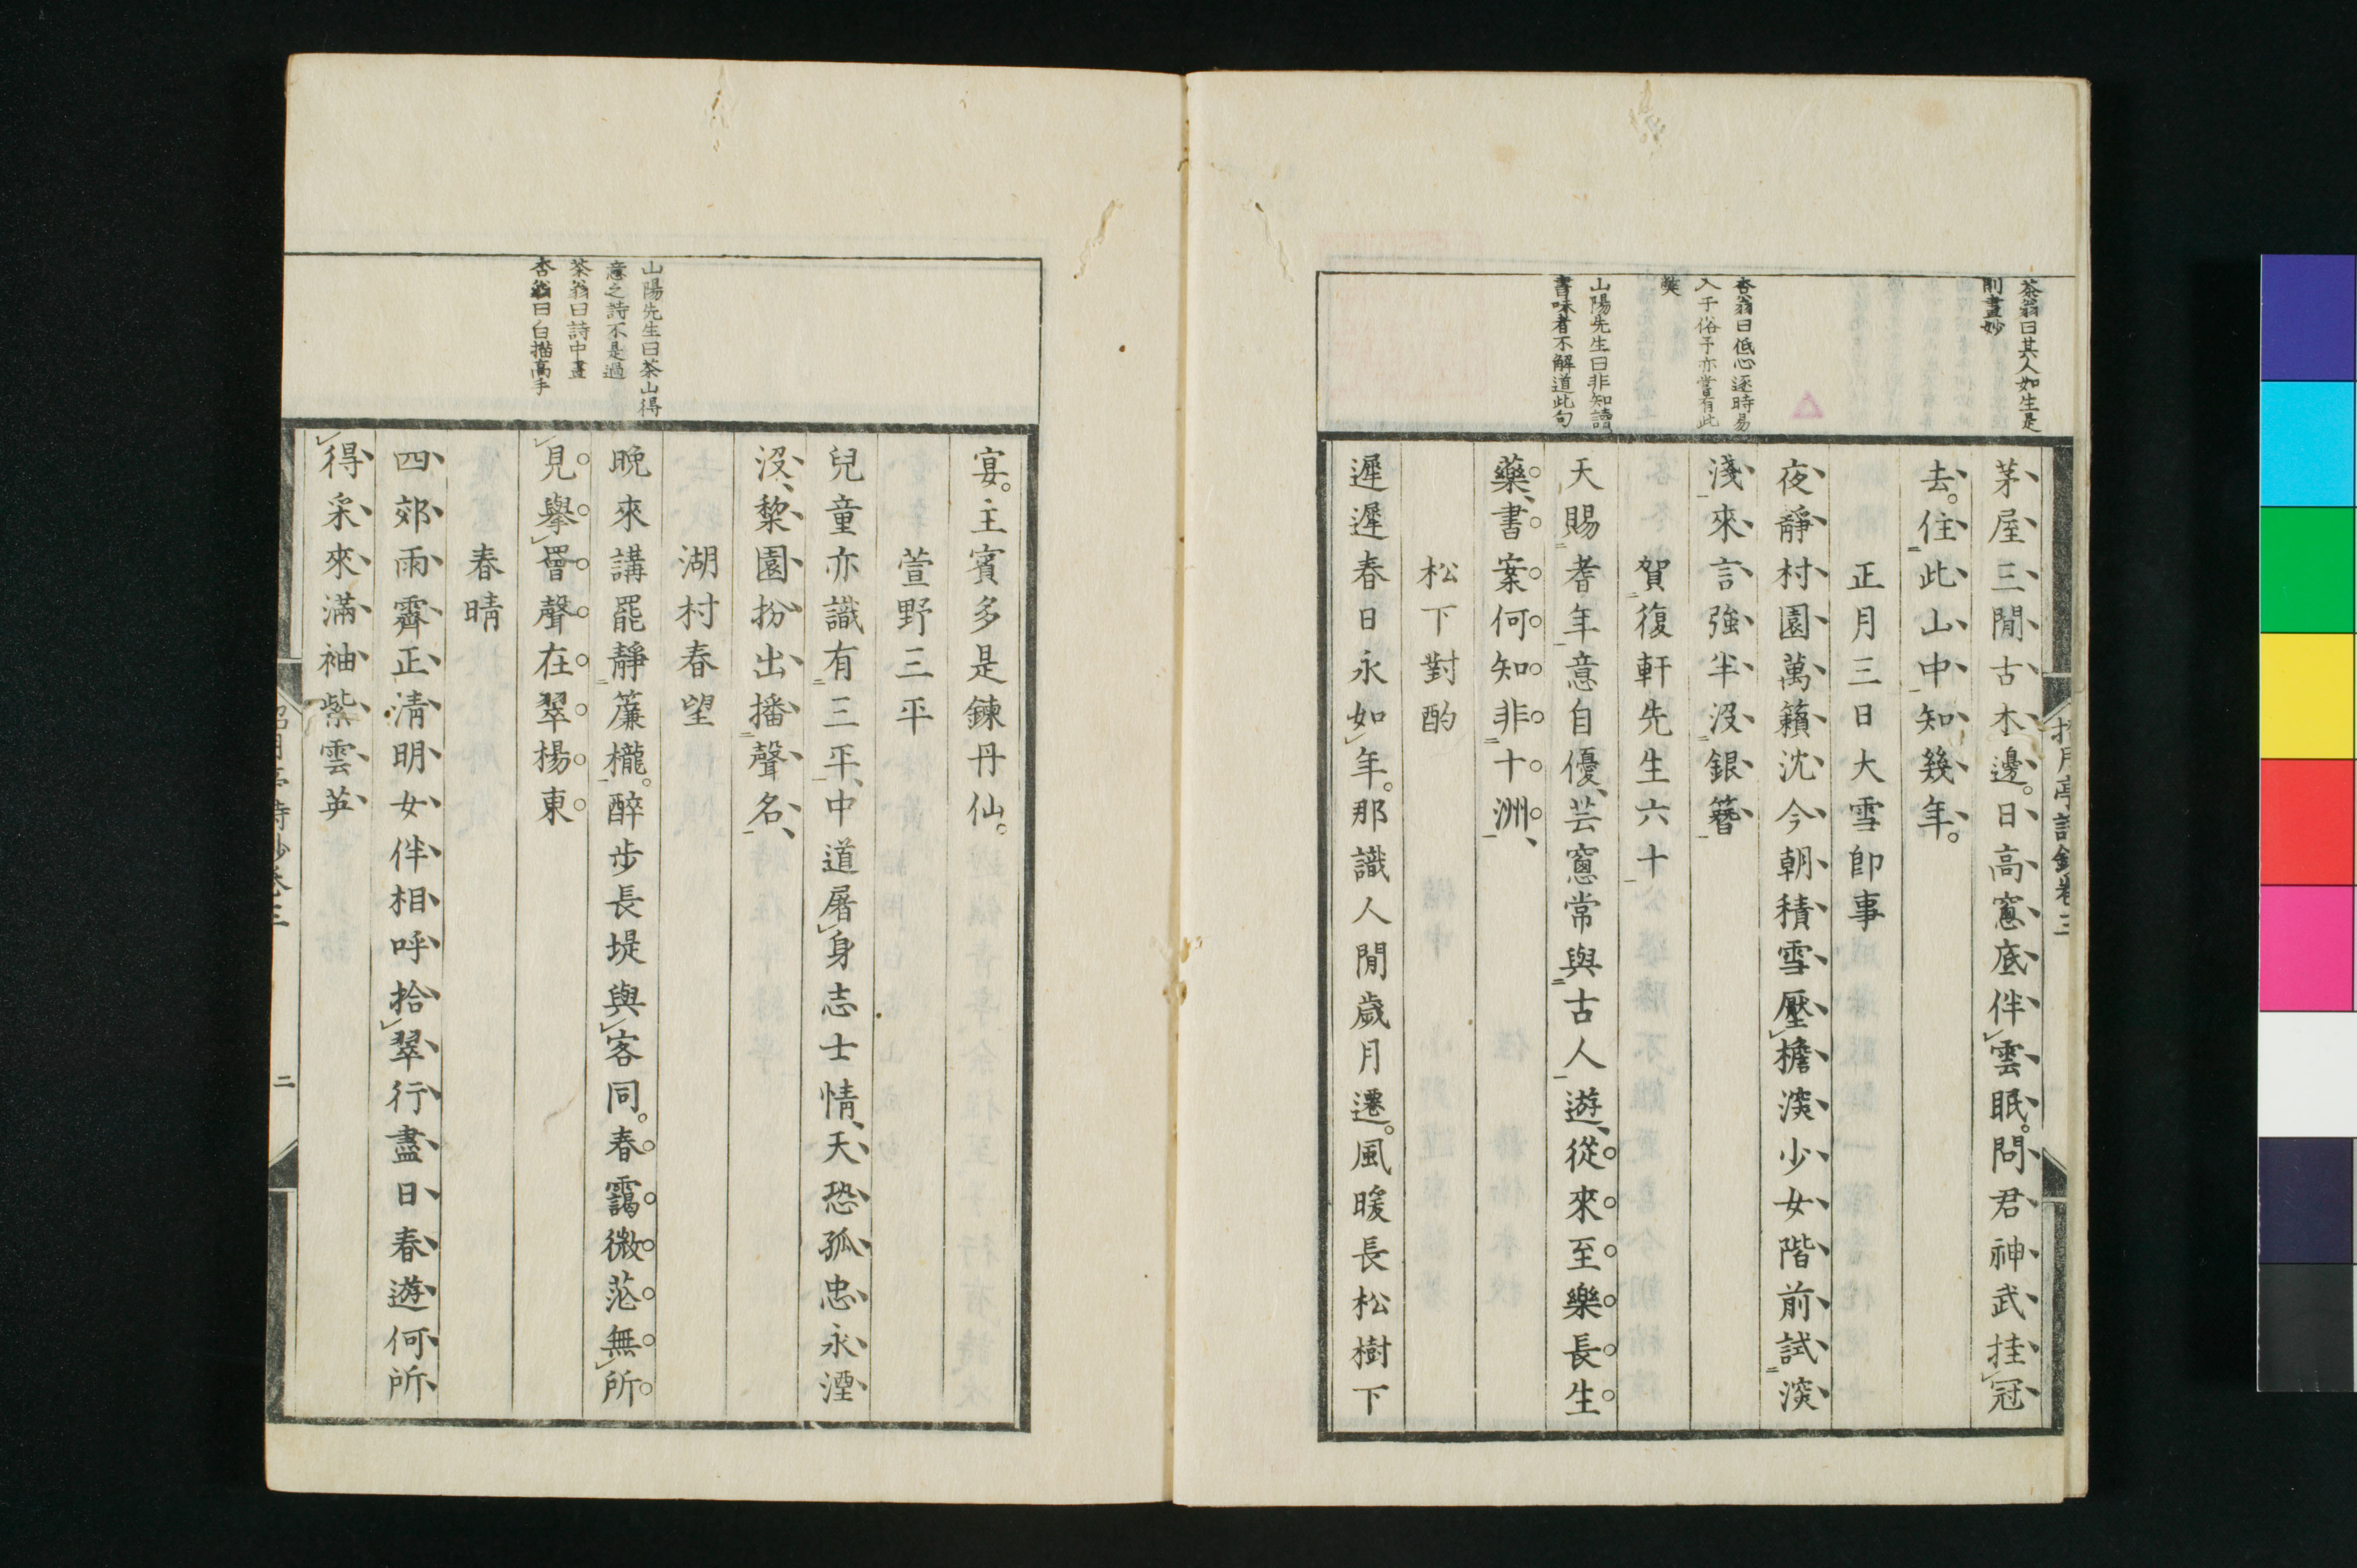 茶翁曰其人如生是
則畫妙
杏翁曰低心逐時易
入于俗予亦嘗有此
獘
山陽先生曰非知讀
書味者不解道此句
茅屋三間古木邊。日高窻底伴雲眠。問君神武挂冠
去。住此山中知幾年。
正月三日大雪卽事
夜靜村園萬籟沈今朝積雪壓檐深少女階前試深
淺來言強半沒銀簪
賀復軒先生六十
天賜耆年意自優、芸窻常與古人遊、從來至樂長生
藥、書案何知非十洲、
松下對酌
遲遲春日永如年。那識人間歲月遷。風暖長松樹下
宴。主賓多是鍊丹仙。
萱野三平
兒童亦識有三平、中道屠身志士情、天恐孤忠永湮
沒、棃園扮出播聲名、
湖村春望
晚來講罷靜簾櫳。醉步長堤與客同。春靄微茫無所
見擧罾聲在翠楊東
春晴
四郊雨霽正淸明女伴相呼拾翠行盡日春遊何所
得采來滿袖紫雲英
山陽先生曰茶山得
意之詩不是過
茶翁曰詩中畫
杏翁曰白描高手
二